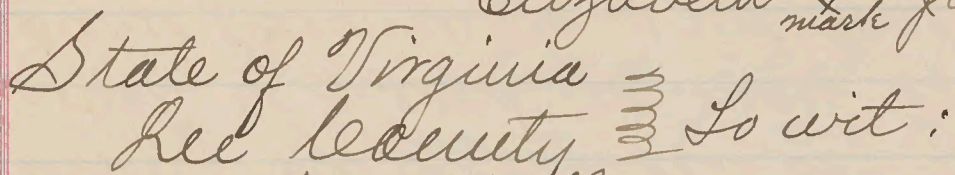 Elizabeth X
mark
State of Virginia
Lee County } To wit: